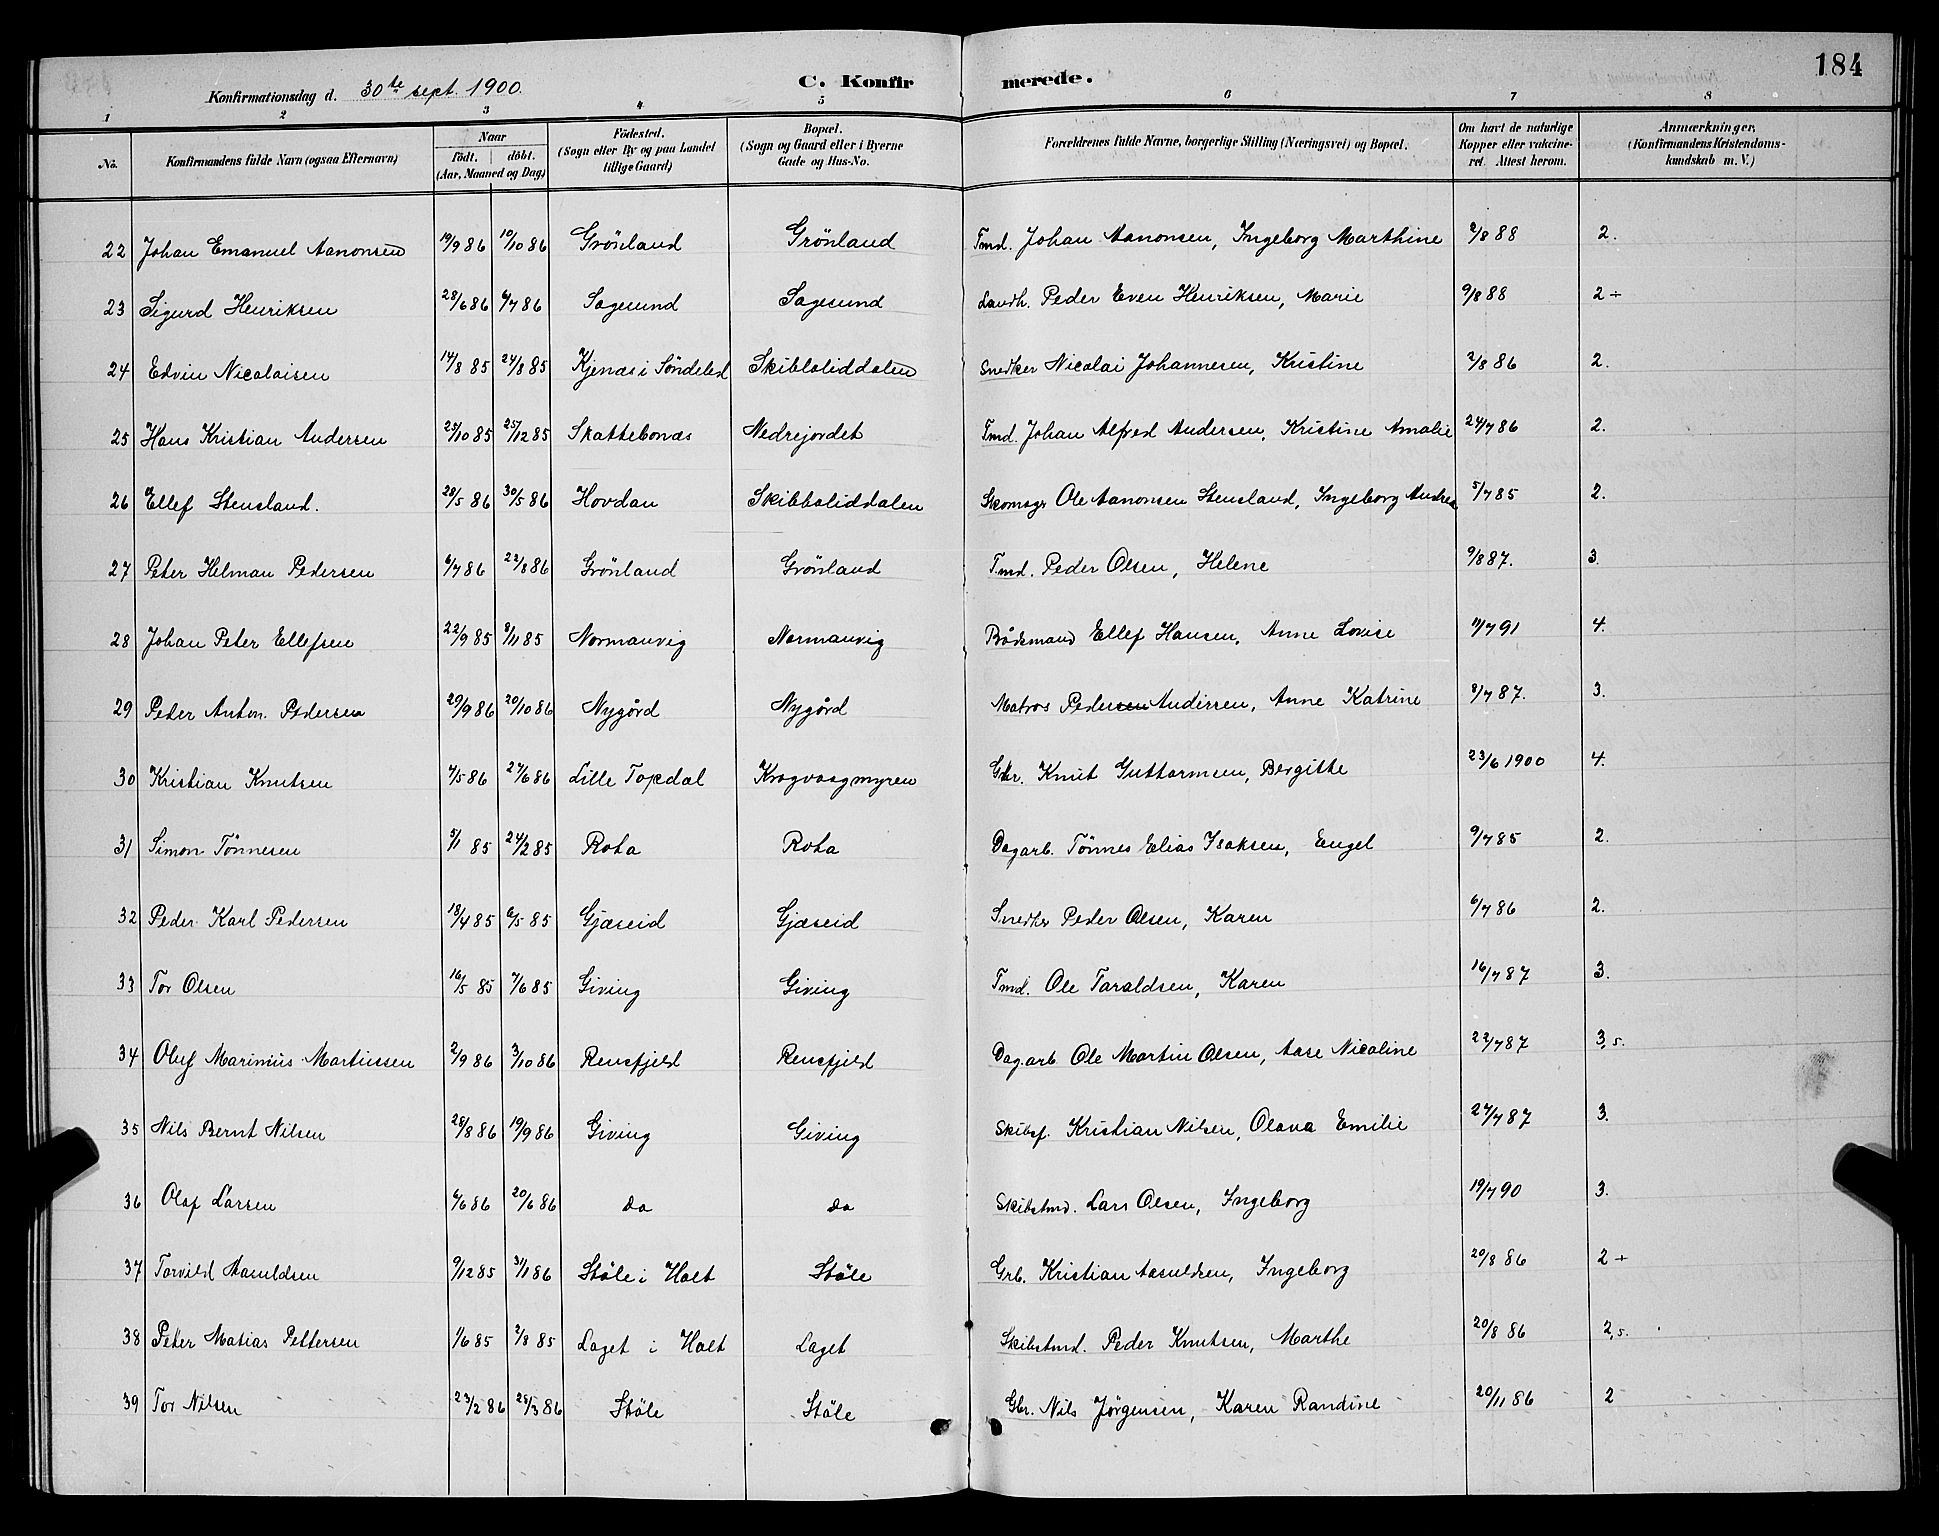 184
Konfirmationsdag d. 30te sept. 1900. C. Konfirmerede.
1 2 3 4 5 6 7 8
No. Konfirmandens fulde Navn (ogsaa Efternavn) Naar födt. döbt. (Aar, Maaned og Dag) Födested. (Sogn eller By og paa Landet tillige Gaard) Bopæl. (Sogn og Gaard eller i Byerne Gade og Hus-No. Forældrenes fulde Navne, borgerlige Stilling (Næringsvei) og Bopæl. Om havt de naturlige Kopper eller vakcineret. Attest herom. Anmærkninger, (Konfirmandens Kristendomskundskab m. V.)
22 Johan Emanuel Aanonsen 19/9 86 10/10 86 Grönland Grönland Tmd. Johan Aanonsen, Ingeborg Marthine 2/8 88 2.
23 Sigurd Henriksen 28/6 86 4/7 86 Sagesund Sagesund Landh. Peder Even Henriksen, Marie 9/8 88 2+
24 Edvin Nicolaisen 14/8 85 24/8 85 Kjenas i Söndeled Skibboliddalen Snedker Nicolai Johannesen, Kristine 2/8 86 2.
25 Hans Kristian Andersen 23/10 85 25/12 85 Skattebonæs Nedrejordet Tmd. Johan Alfred Andersen, Kristine Amalie 24/7 86 2.
26 Ellef Stensland. 20/5 86 30/5 86 Hovdan Skibboliddalen Skomagr Ole Aanonsen Stensland, Ingeborg Andrea 5/7 85 2.
27 Peter Helman Pedersen 6/7 86 22/8 86 Grönland Grönland Tmd. Peder Olsen, Helene 9/8 87. 3.
28 Johan Peter Ellefsen 22/9 85 8/11 85 Normanvig Normanvig Bådsmand Ellef Hansen, Anne Lovise 11/7 91 4.
29 Peder Anton. Pedersen 29/9 86 20/10 86 Nygård Nygård Matros Pedersen Andersen, Anne Katrine 8/7 87. 3.
30 Kristian Knutsen 7/5 86 27/6 86 Lille Topdal Krogvaagmyren Gbr. Knut Guttormsen, Bergitte 23/6 1900 4.
31 Simon Tönnesen 5/1 85 24/2 85 Rota Rota Dagarb. Tönnes Elias Isaksen, Engel 9/7 85 2.
32 Peder Karl Pedersen 18/4 85 6/5 85 Gjæseid Gjæseid Snedker Peder Olsen, Karen 6/7 86 2.
33 Tor Olsen 16/5 85 7/6 85 Giving Giving Tmd. Ole Taraldsen, Karen 16/7 87 3.
34 Oluf Marinius Martinsen 2/9 86 3/10 86 Rensfjeld Rensfjeld Dagarb. Ole Martin Olsen, Aase Nicoline 22/7 87 3,5.
35 Nils Bernt Nilsen 28/8 86 19/9 86 Giving Giving Skibsf. Kristian Nilsen, Olava Emilie 27/7 87 3.
36 Olaf Larsen 4/6 86 20/6 86 do do Skibstmd. Lars Olsen, Ingeborg 19/7 90 3.
37 Torvild Aasuldsen 9/12 85 31/1 86 Stöle i Holt Stöle Grb. Kristian Aasuldsen, Ingeborg 20/8 86 2+
38 Peter Matias Pettersen 1/6 85 2/8 85 Laget i Holt Laget Skibstmd. Peder Knutsen, Marthe 20/8 86 2,5.
39 Tor Nilsen 23/2 86 28/3 86 Stöle Stöle Gbr. Nils Jörgensen, Karen Randine 20/11 86 2